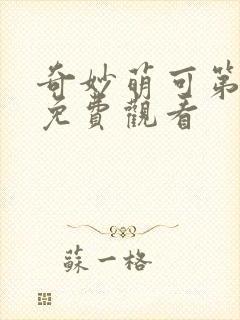 奇妙萌可第
免費觀看
蘇一格